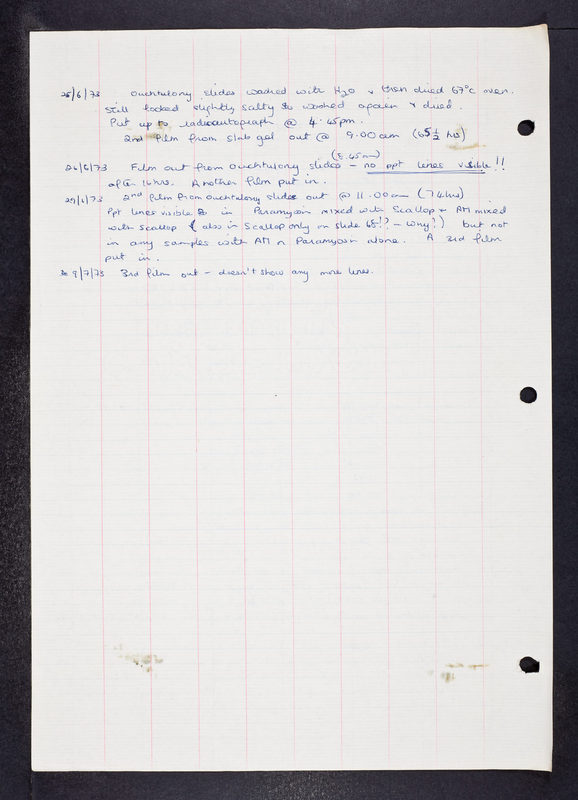 25/6/73 Ouchtulony slides washed with H2O & then dried 67°C oven.
Still looked slightly salty so washed again & dried.
Put up to radioautograph @ 4.45pm.
2nd film from slab gel out @ 9.00am (65½ hrs)
(8.45am)
26/6/73 Film out from Ouchtulony slides - no ppt lines visible!!
after 16hrs. Another film put in.
29/6/73 2nd film from Ouchtulony slides out @ 11.00am (74hrs)
Ppt lines visible in Paramyosin mixed with Scallop & AM mixed
with Scallop (also in Scallop only on slide 68!? - Why?) but not
in any samples with AM or Paramyosin alone. A 3rd film
put in.
9/7/73 3rd film out - doesn't show any more lines.